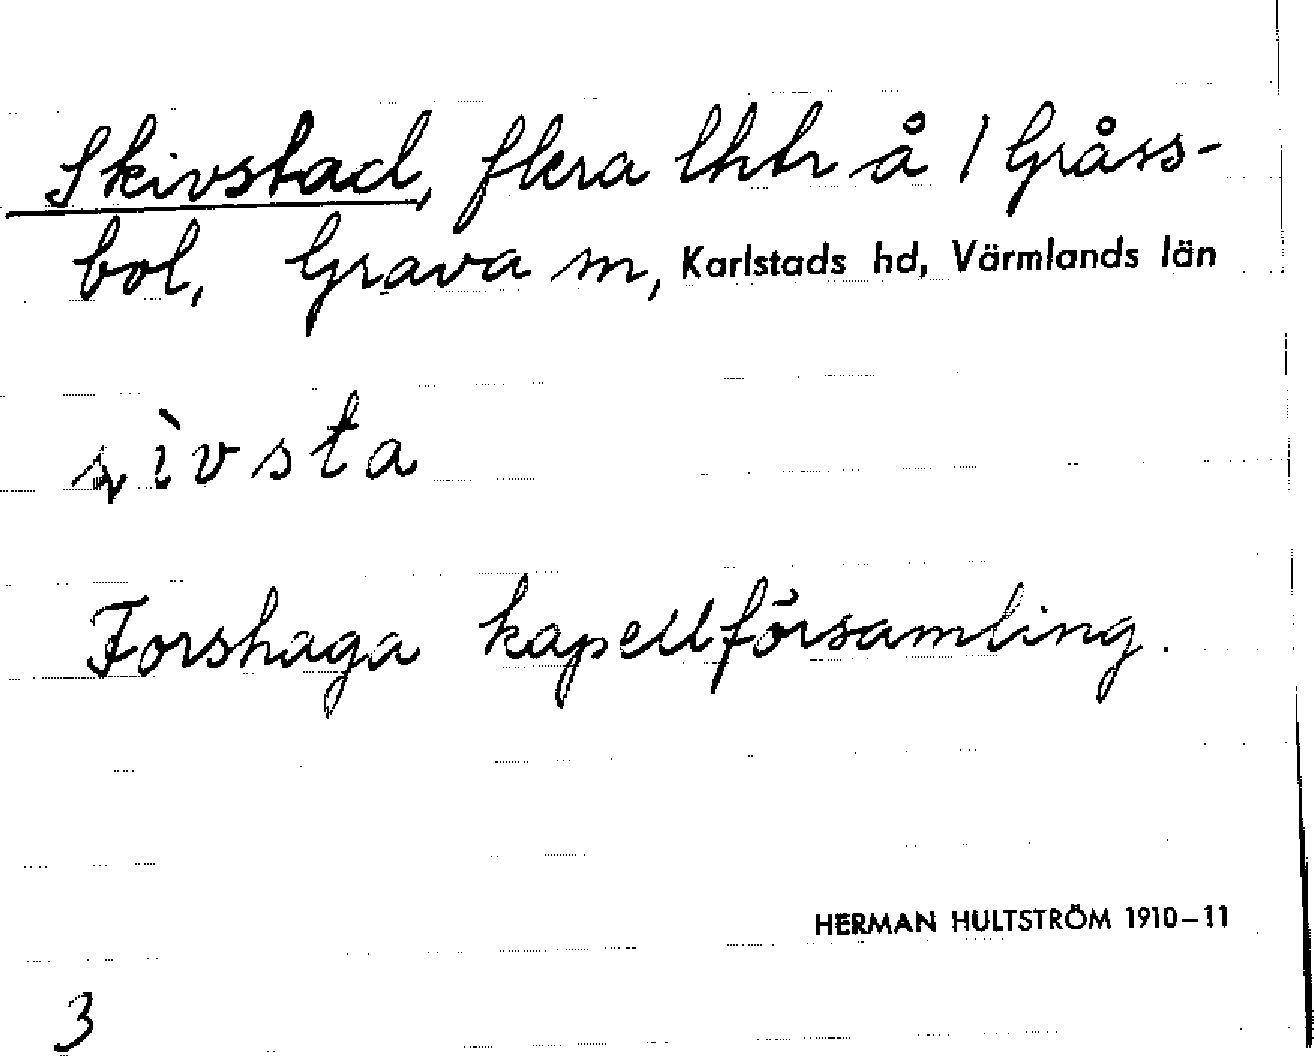 Skivstad, flera lhtr å 1 Gråss-
bol, Grava sn, Karlstads hd, Värmlands län
Forshaga kapellförsamling.
HERMAN HULTSTRÖM 1910–11
3